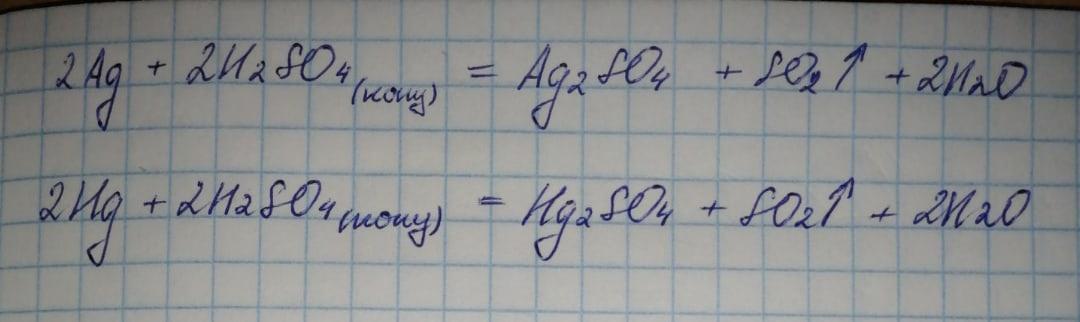 2Ag + 2H₂SO₄(конц) = Ag₂SO₄ + SO₂↑ + 2H₂O
2Hg + 2H₂SO₄(конц) = Hg₂SO₄ + SO₂↑ + 2H₂O